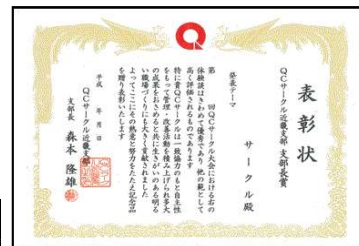 表彰状
QCサークル近畿支部 支部長賞
サークル殿
発表テーマ
第 回QCサークル大会における右の
体験談はきわめて優秀であり 他の範として
高く評価されるものであります
特に貴QCサークルは一致協力のもと自主性
をもって管理・改善活動を積み上げられ多大
の成果をおさめると共に生きがいのある明る
い職場づくりにも大きく貢献されました
よってここにその熱意と努力をたたえ記念品
を贈り表彰いたします
平成 年 月 日
QCサークル近畿支部
支部長 森本 隆雄